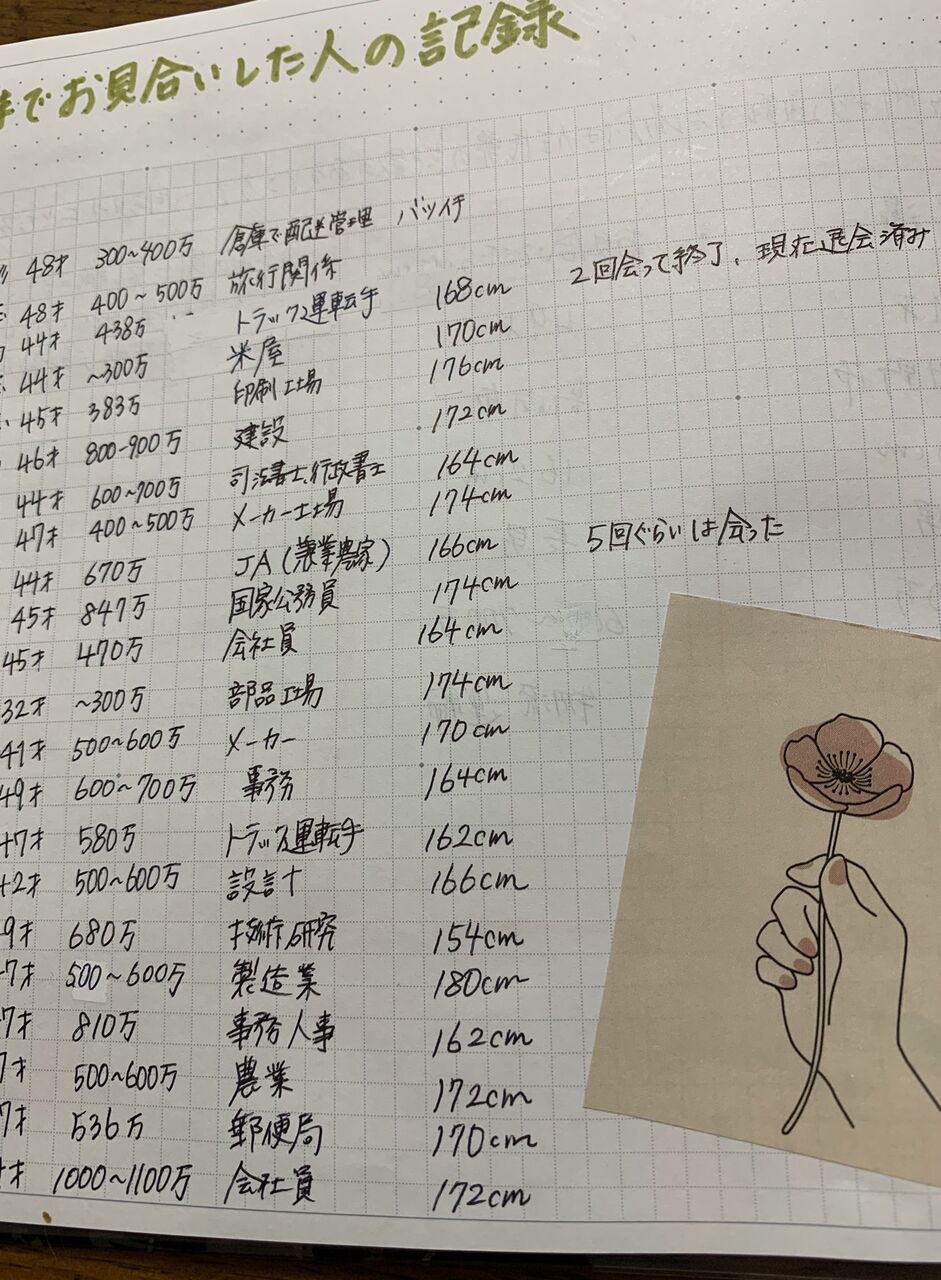 までお見合いした人の記録
48才 300~400万 倉庫で配送管理 バツイチ
48才 400~500万 旅行関係 168cm 2回会って終了、現在退会済み
44才 438万 トラック運転手 170cm
44才 ~300万 米屋 176cm
45才 383万 印刷工場 172cm
46才 800-900万 建設 164cm
44才 600~700万 司法書士、行政書士 174cm
47才 400~500万 メーカー工場 166cm 5回ぐらいは会った
44才 670万 JA(兼業農家) 174cm
45才 847万 国家公務員 164cm
45才 470万 会社員 174cm
32才 ~300万 部品工場 170cm
41才 500~600万 メーカー 164cm
49才 600~700万 事務 162cm
47才 580万 トラック運転手 166cm
42才 500~600万 設計 154cm
9才 680万 技術研究 180cm
7才 500~600万 製造業 162cm
7才 810万 事務人事 172cm
7才 500~600万 農業 170cm
7才 536万 郵便局 172cm
才 1000~1100万 会社員